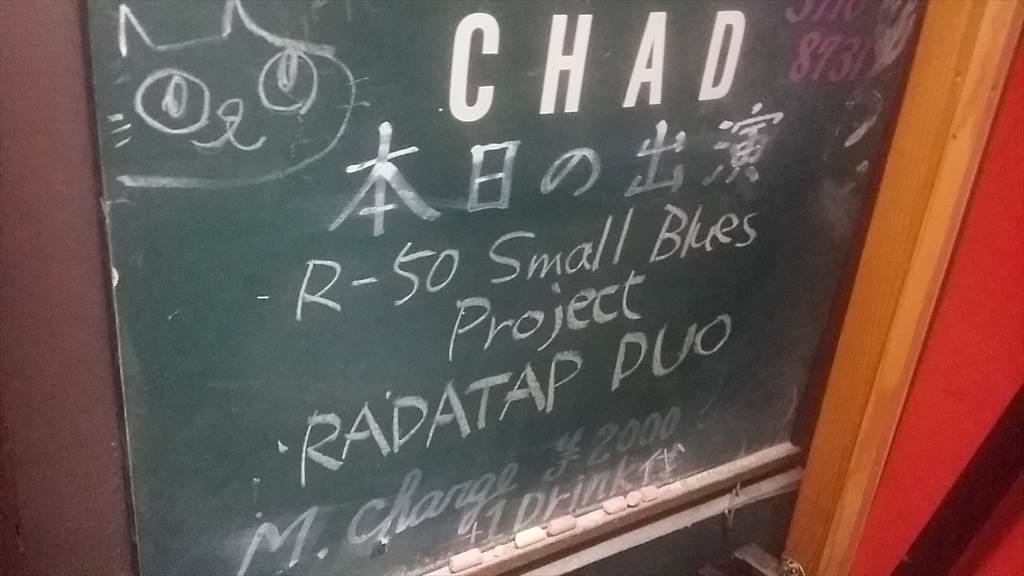 CHAD
8731
本日の出演
R-50 Small Blues
Project
RADATAP DUO
M. Charge ¥2000
+1Drink付